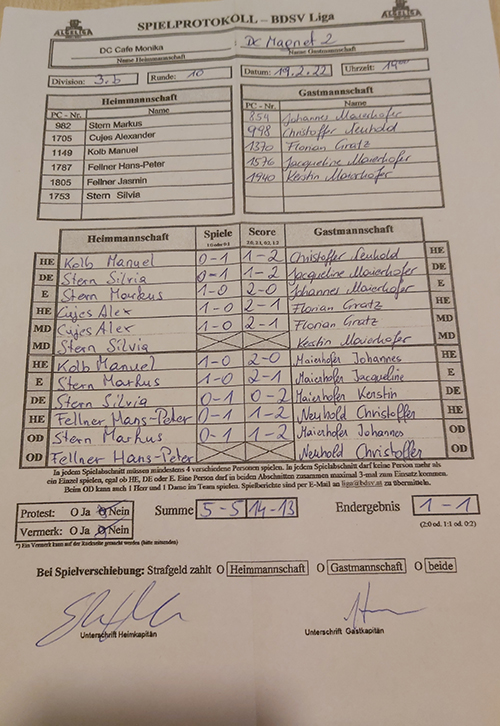 SPIELPROTOKOLL – BDSV Liga
DC Cafe Monika : DC Magnet 2
Name Heimmannschaft Name Gastmannschaft
Division: 3.b Runde: 10 Datum: 19.2.22 Uhrzeit: 14⁰⁰
Heimmannschaft Gastmannschaft
PC - Nr. Name PC - Nr. Name
982 Stern Markus 854 Johannes Maierhofer
1705 Cujes Alexander 998 Christoffer Neuhold
1149 Kolb Manuel 1370 Florian Gratz
1787 Fellner Hans-Peter 1576 Jacqueline Maierhofer
1805 Fellner Jasmin 1940 Kerstin Maierhofer
1753 Stern Silvia
Heimmannschaft Spiele Score Gastmannschaft
HE Kolb Manuel 0-1 1-2 Christoffer Neuhold HE
DE Stern Silvia 0-1 1-2 Jacqueline Maierhofer DE
E Stern Markus 1-0 2-0 Johannes Maierhofer E
HE Cujes Alex 1-0 2-1 Florian Gratz HE
MD Cujes Alex 1-0 2-1 Florian Gratz MD
MD Stern Silvia Kerstin Maierhofer MD
HE Kolb Manuel 1-0 2-0 Maierhofer Johannes HE
E Stern Markus 1-0 2-1 Maierhofer Jacqueline E
DE Stern Silvia 0-1 0-2 Maierhofer Kerstin DE
HE Fellner Hans-Peter 0-1 1-2 Neuhold Christoffer HE
OD Stern Markus 0-1 1-2 Maierhofer Johannes OD
OD Fellner Hans-Peter Neuhold Christoffer OD
In jedem Spielabschnitt müssen mindestens 4 verschiedene Personen spielen. In jedem Spielabschnitt darf keine Person mehr als
ein Einzel spielen, egal ob HE, DE oder E. Eine Person darf in beiden Abschnitten zusammen maximal 3-mal zum Einsatz kommen.
Beim OD kann auch 1 Herr und 1 Dame im Team spielen. Spielberichte sind per E-Mail an liga@bdsv.at zu übermitteln.
Protest: O Ja O Nein Summe 5-5 14-13 Endergebnis 1-1
Vermerk: O Ja O Nein (2:0 od. 1:1 od. 0:2)
*) Ein Vermerk kann auf der Rückseite gemacht werden (bitte umwenden)
Bei Spielverschiebung: Strafgeld zahlt O Heimmannschaft O Gastmannschaft O beide
Unterschrift Heimkapitän Unterschrift Gastkapitän